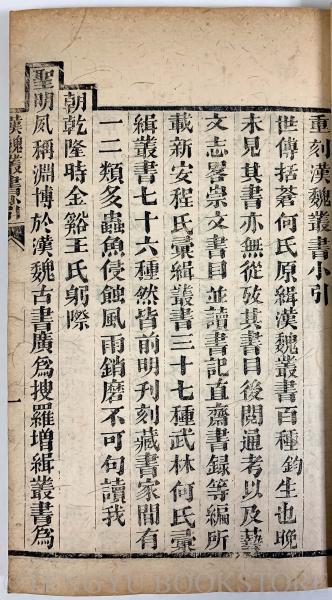 重刻漢魏叢書小引
世傳括蒼何氏原緝漢魏叢書百種鈞生也晚
未見其書亦無從攷其書目後閱通考以及藝
文志畧崇文書目並讀書記直齋書録等編所
載新安程氏彙緝叢書三十七種武林何氏彙
緝叢書七十六種然皆前明刊刻藏書家間有
一二類多蟲魚侵蝕風雨銷磨不可句讀我
朝乾隆時金谿王氏躬際
聖明夙稱淵博於漢魏古書廣為搜羅增緝叢書為
漢魏叢書
一
BOOKSTORE